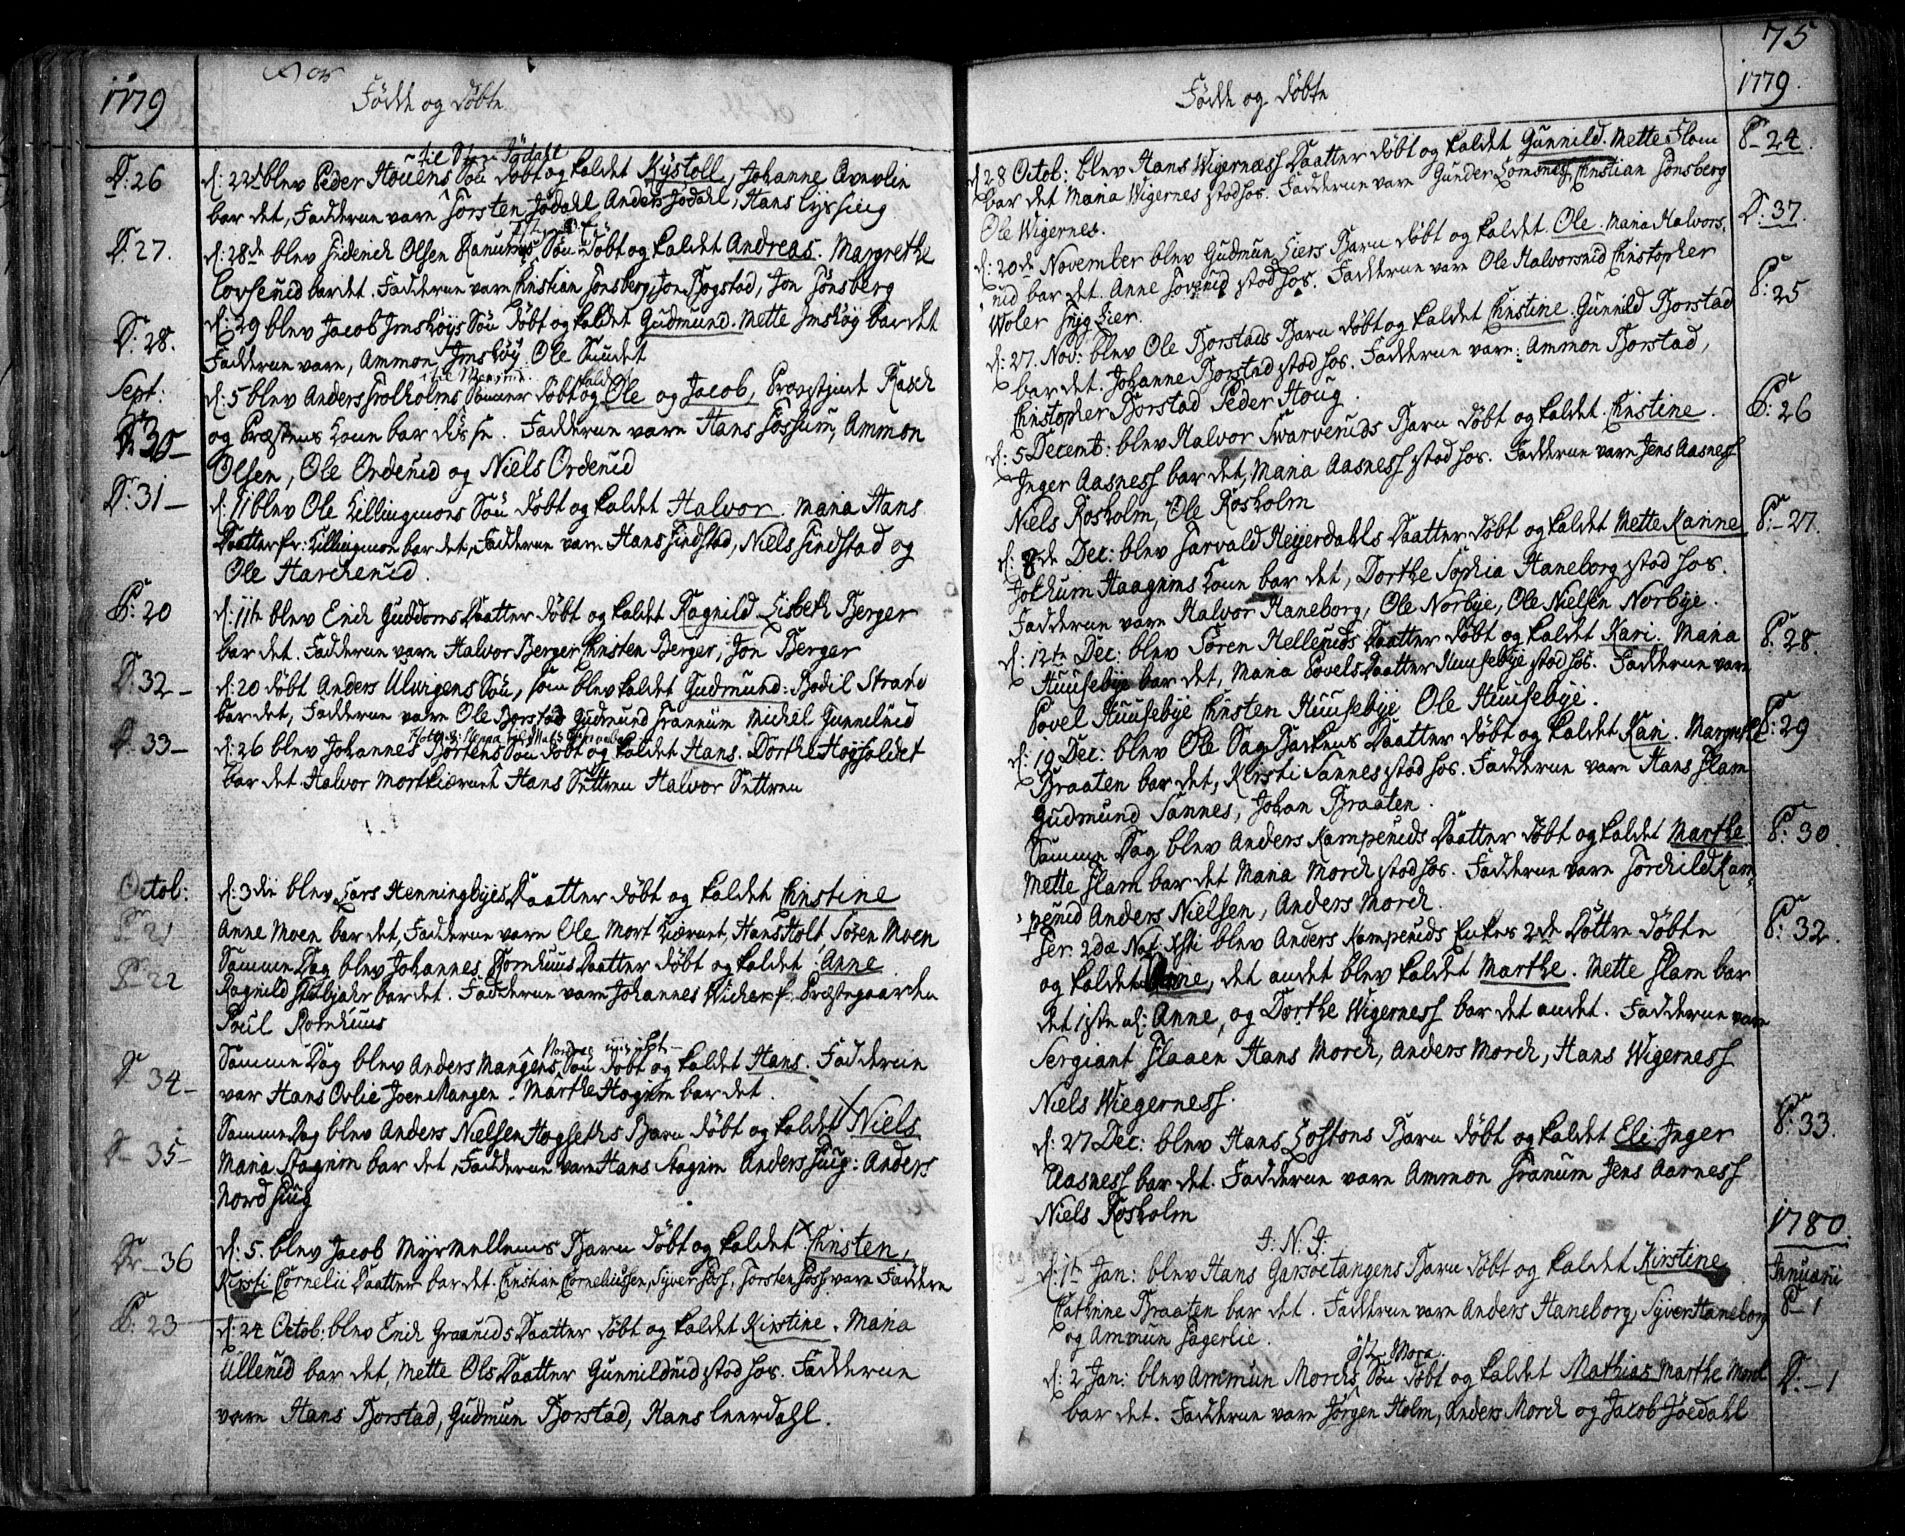 1779
Födde og Döbte
til Store Jödahl
D: 26 d: 22d blev Peder Houens Sön döbt og kaldet Kystoll, Johanne
bar det, Fadderne vare Torsten Jödahl Anders Jödahl, Hans Lyssing
D: 27. d: 28de blev Friderich Olsen Sön döbt og kaldet Andreas. Margrethe
bar det. Fadderne vare Christian Jonsberg, Jon Bogstad, Jon Jonsberg
D: 28. d: 29 blev Jacob Imshöys Sön döbt og kaldet Gudmund. Mette Imshöy bar det
Fadderne vare, Ammon Imshöy. Ole Sundet
Sept: d: 5 blev Anders Trolholms Sönner döbt og kaldet Ole og Jacob, Provstinde Rasch
D: 30 – og Præstens Kone bar disse. Fadderne vare Hans Fossum, Ammon
Olsen, Ole Ordenid og Niels Ordenid
D: 31 – d: 11 blev Ole Killingmoens Sön döbt og kaldet Halvor. Maria Hans
Daatter fr: Killingmoe bar det, Fadderne vare Hans Findstad, Niels Findstad og
Ole Harchenid.
P: 20 d: 11te blev Erich Guddorns Daatter döbt og kaldet Ragnild Lisbeth Berger
bar det. Fadderne vare Halvor Berger Christen Berger, Jon Berger
D: 32 – d: 20 döbt Anders Ulvigens Sön, som blev kaldet Gudmund: Bodil Strand
bar det, Fadderne vare Ole Borstad Gudmund Grannum Michel Gunnelnid
D: 33 – d: 26 blev Johannes Sön döbt og kaldet Hans. Dorthe Hogsaldet
bar det Halvor Mortkiærnet Hans Settren Halvor Settren
Octob: d: 3die blev Lars Henningbyes Daatter döbt og kaldet Christine
P: 21 Anne Moen bar det, Fadderne vare Ole Mort Kiærnet, Hans Holt Sören Moen
P: 22 Samme Dag blev Johannes Kornhuus Daatter döbt og kaldet: Anne
Ragnild bar det. Fadderne vare Johannes Præstegaarden
Poul Kornhuus
D 34 – Samme Dag blev Anders Mangens Sön döbt og kaldet Hans. Fadderne
var Hans Ovlie Joen Mangen. Marthe Hagnim bar det.
D – 35 – Samme Dag blev Anders Nielsen Hogseths Barn döbt og kaldet Niels
Maria Stagnim bar det, Fadderne vare Hans Stagnim Anders Huug: Anders
Nord Huug
Dr – 36 d: 5. blev Jacob Myrmellems Barn döbt og kaldet Christen,
Kirsti Cornelii Daatter bar det. Christian Corneliussen, Syver Foss, Torsten Foss vare Faddere
P: 23 d: 24 Octob: blev Erich Graanids Daatter döbt og kaldet Kirstine. Maria
Ullenid bar det, Mette Ols Daatter Gunnildnid stod hos. Fadderne
vare Hans Borstad, Gudmun Borstad, Hans Leerdahl.
75
Födde og Döbte 1779.
d 28 Octob: blev Hans Wigerness Daatter döbt og kaldet Gunnild. Mette Flom P – 24.
bar det Maria Wigernes stod hos. Fadderne vare Gunder Lomsness, Christian Jonsberg
Ole Wigernes.
d: 20de November blev Gudmun Liers Barn döbt og kaldet. Ole. Maria Halvors, D: 37.
nid bar det. Anne stod hos. Fadderne vare Ole Halvorsnid Christopher
Woler Lier.
d: 27. Nov: blev Ole Borstads Barn döbt og kaldet Christine. Gunnild Borstad P: 25
bar det. Johanne Borstad stod hos. Fadderne vare: Ammon Borstad,
Christopher Borstad Peder Houg.
d: 5 Decemb: blev Halvor Swarvenids Barn döbt og kaldet. Christine. P: 26
Inger Aasness bar det, Maria Aasness stod hos. Fadderne vare Jens Aasness
Niels Kosholm, Ole Kosholm
d: 8de Dec: blev Harvald Heyerdahls Daatter döbt og kaldet Mette Karine P – 27.
Jokhum Haagnims Kone bar det, Dorthe Sophia Haneborg stod hos.
Fadderne vare Halvor Haneborg, Ole Norbye, Ole Nielsen Norbye.
d: 12te Dec: blev Sören Hellenids Daatter döbt og kaldet Kari. Maria P: 28.
Huusebye bar det, Maria Povels Daatter Huusebye stod hos. Fadderne vare
Povel Huusebye Christen Huusebye Ole Huusebye.
d: 19 Dec: blev Ole Sag Backens Daatter döbt og kaldet Kari. Margrethe P: 29
Braaten bar det, Kirsti Sannes stod hos. Fadderne vare Hans Flam
Gudmund Sannes, Johan Braaten.
Samme Dag blev Anders Kampenids Daatter döbt og kaldet Marthe P: 30.
Mette Flam bar det Maria Morch stod hos. Fadderne vare Torchild Kam-
penid Anders Nielsen, Anders Morch.
Fer: 2dæ Nat: Xsti blev Anders Kampenids Enkes 2de Döttre döbte P: 32.
og kaldet Anne, det andet blev kaldet Marthe. Mette Flam bar
det 1ste n: Anne, og Dorthe Wigerness bar det andet. Fadderne vare
Sergiant Flaaen Hans Morch, Anders Morch, Hans Wigerness
Niels Wiegerness.
d: 27 Dec: blev Hans Loftons Barn döbt og kaldet Eli: Inger P: 33.
Aasness bar det. Fadderne vare Ammon Granum Jens Aarness
Niels Kosholm
I. N. J. 1780.
d: 1te Jan: blev Hans Garsoetangens Barn döbt og kaldet Kirstine Januarii
Cathrine Braaten bar det. Fadderne vare Anders Haneborg, Syver Haneborg P – 1
og Ammun Fagerlie.
d: 2 Jan: blev Ammun Morchs Sön döbt og kaldet Mathias Marthe Morch D. – 1
bar det. Fadderne vare Jörgen Holm, Anders Morch og Jacob Jöedahl